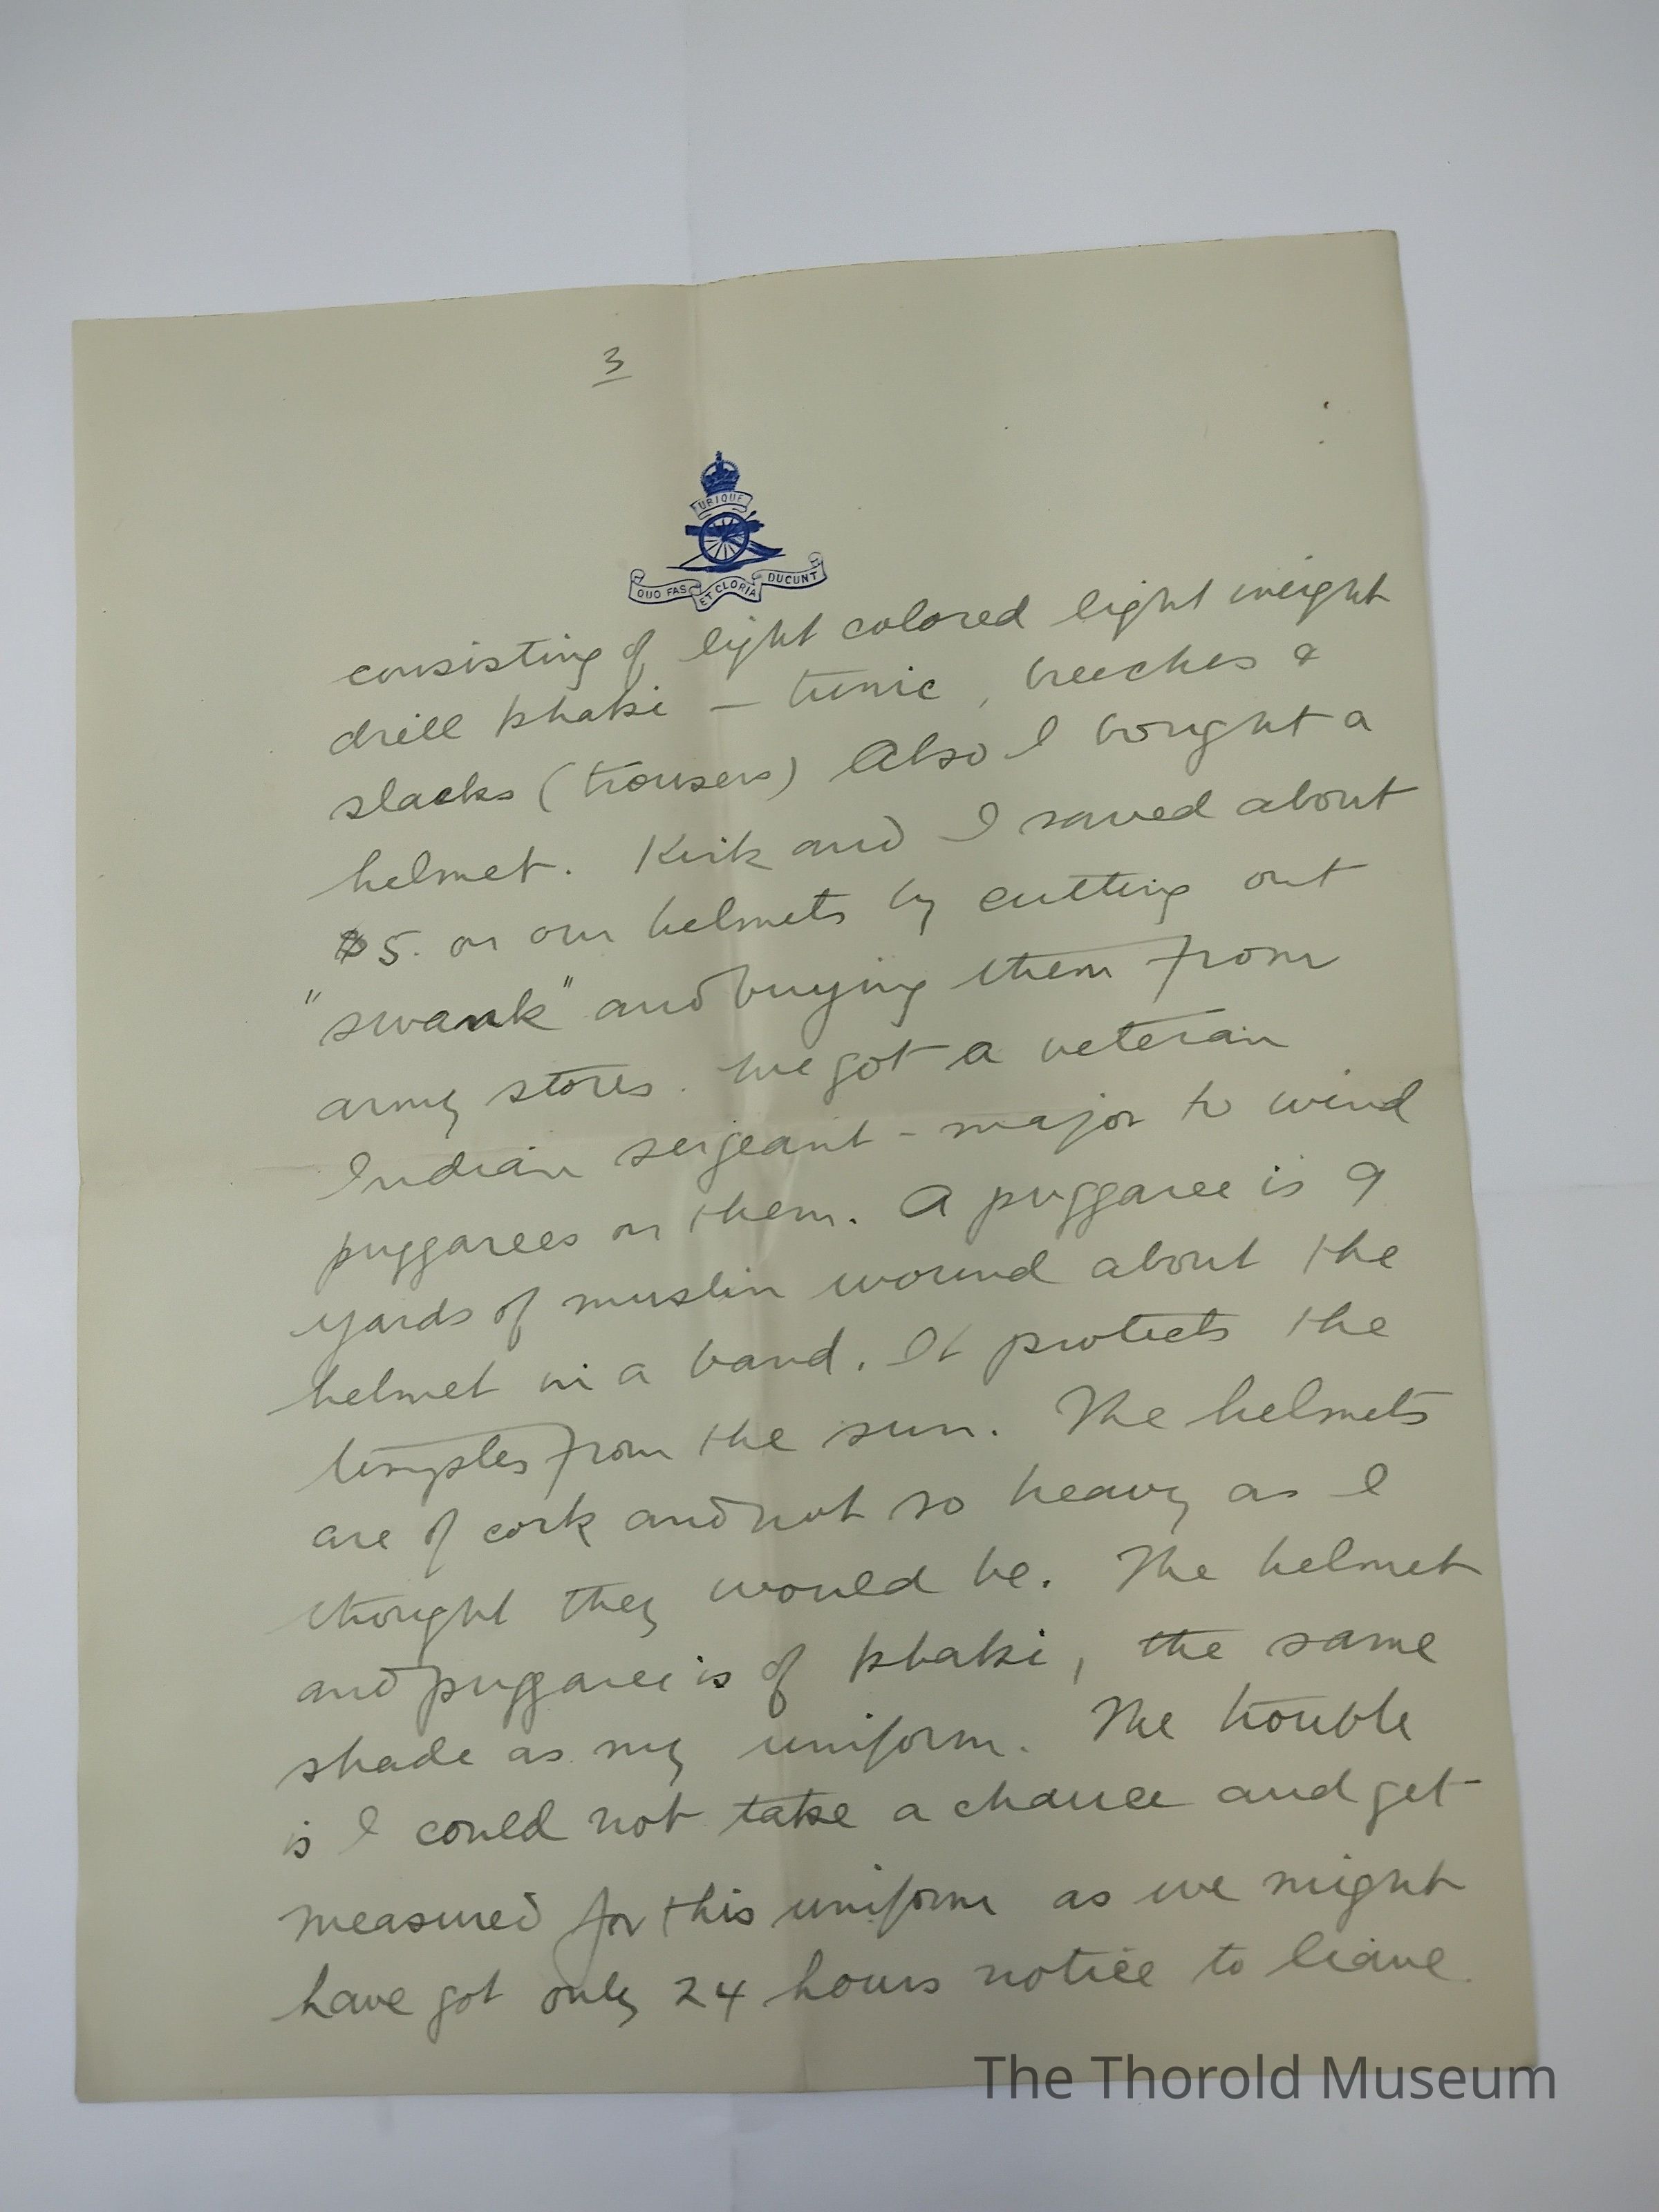 3
UBIQUE
QUO FAS ET GLORIA DUCUNT
consisting of light colored light weight
drill khaki — tunic, breeches &
slacks (trousers) Also I bought a
helmet. Kirk and I saved about
$5. on our helmets by cutting out
"swank" and buying them from
army stores. We got a veteran
Indian sergeant-major to wind
puggarees on them. A puggaree is 9
yards of muslin wound about the
helmet in a band. It protects the
temples from the sun. The helmets
are of cork and not so heavy as I
thought they would be. The helmet
and puggaree is of khaki, the same
shade as my uniform. The trouble
is I could not take a chance and get
measured for this uniform as we might
have got only 24 hours notice to leave.
The Thorold Museum